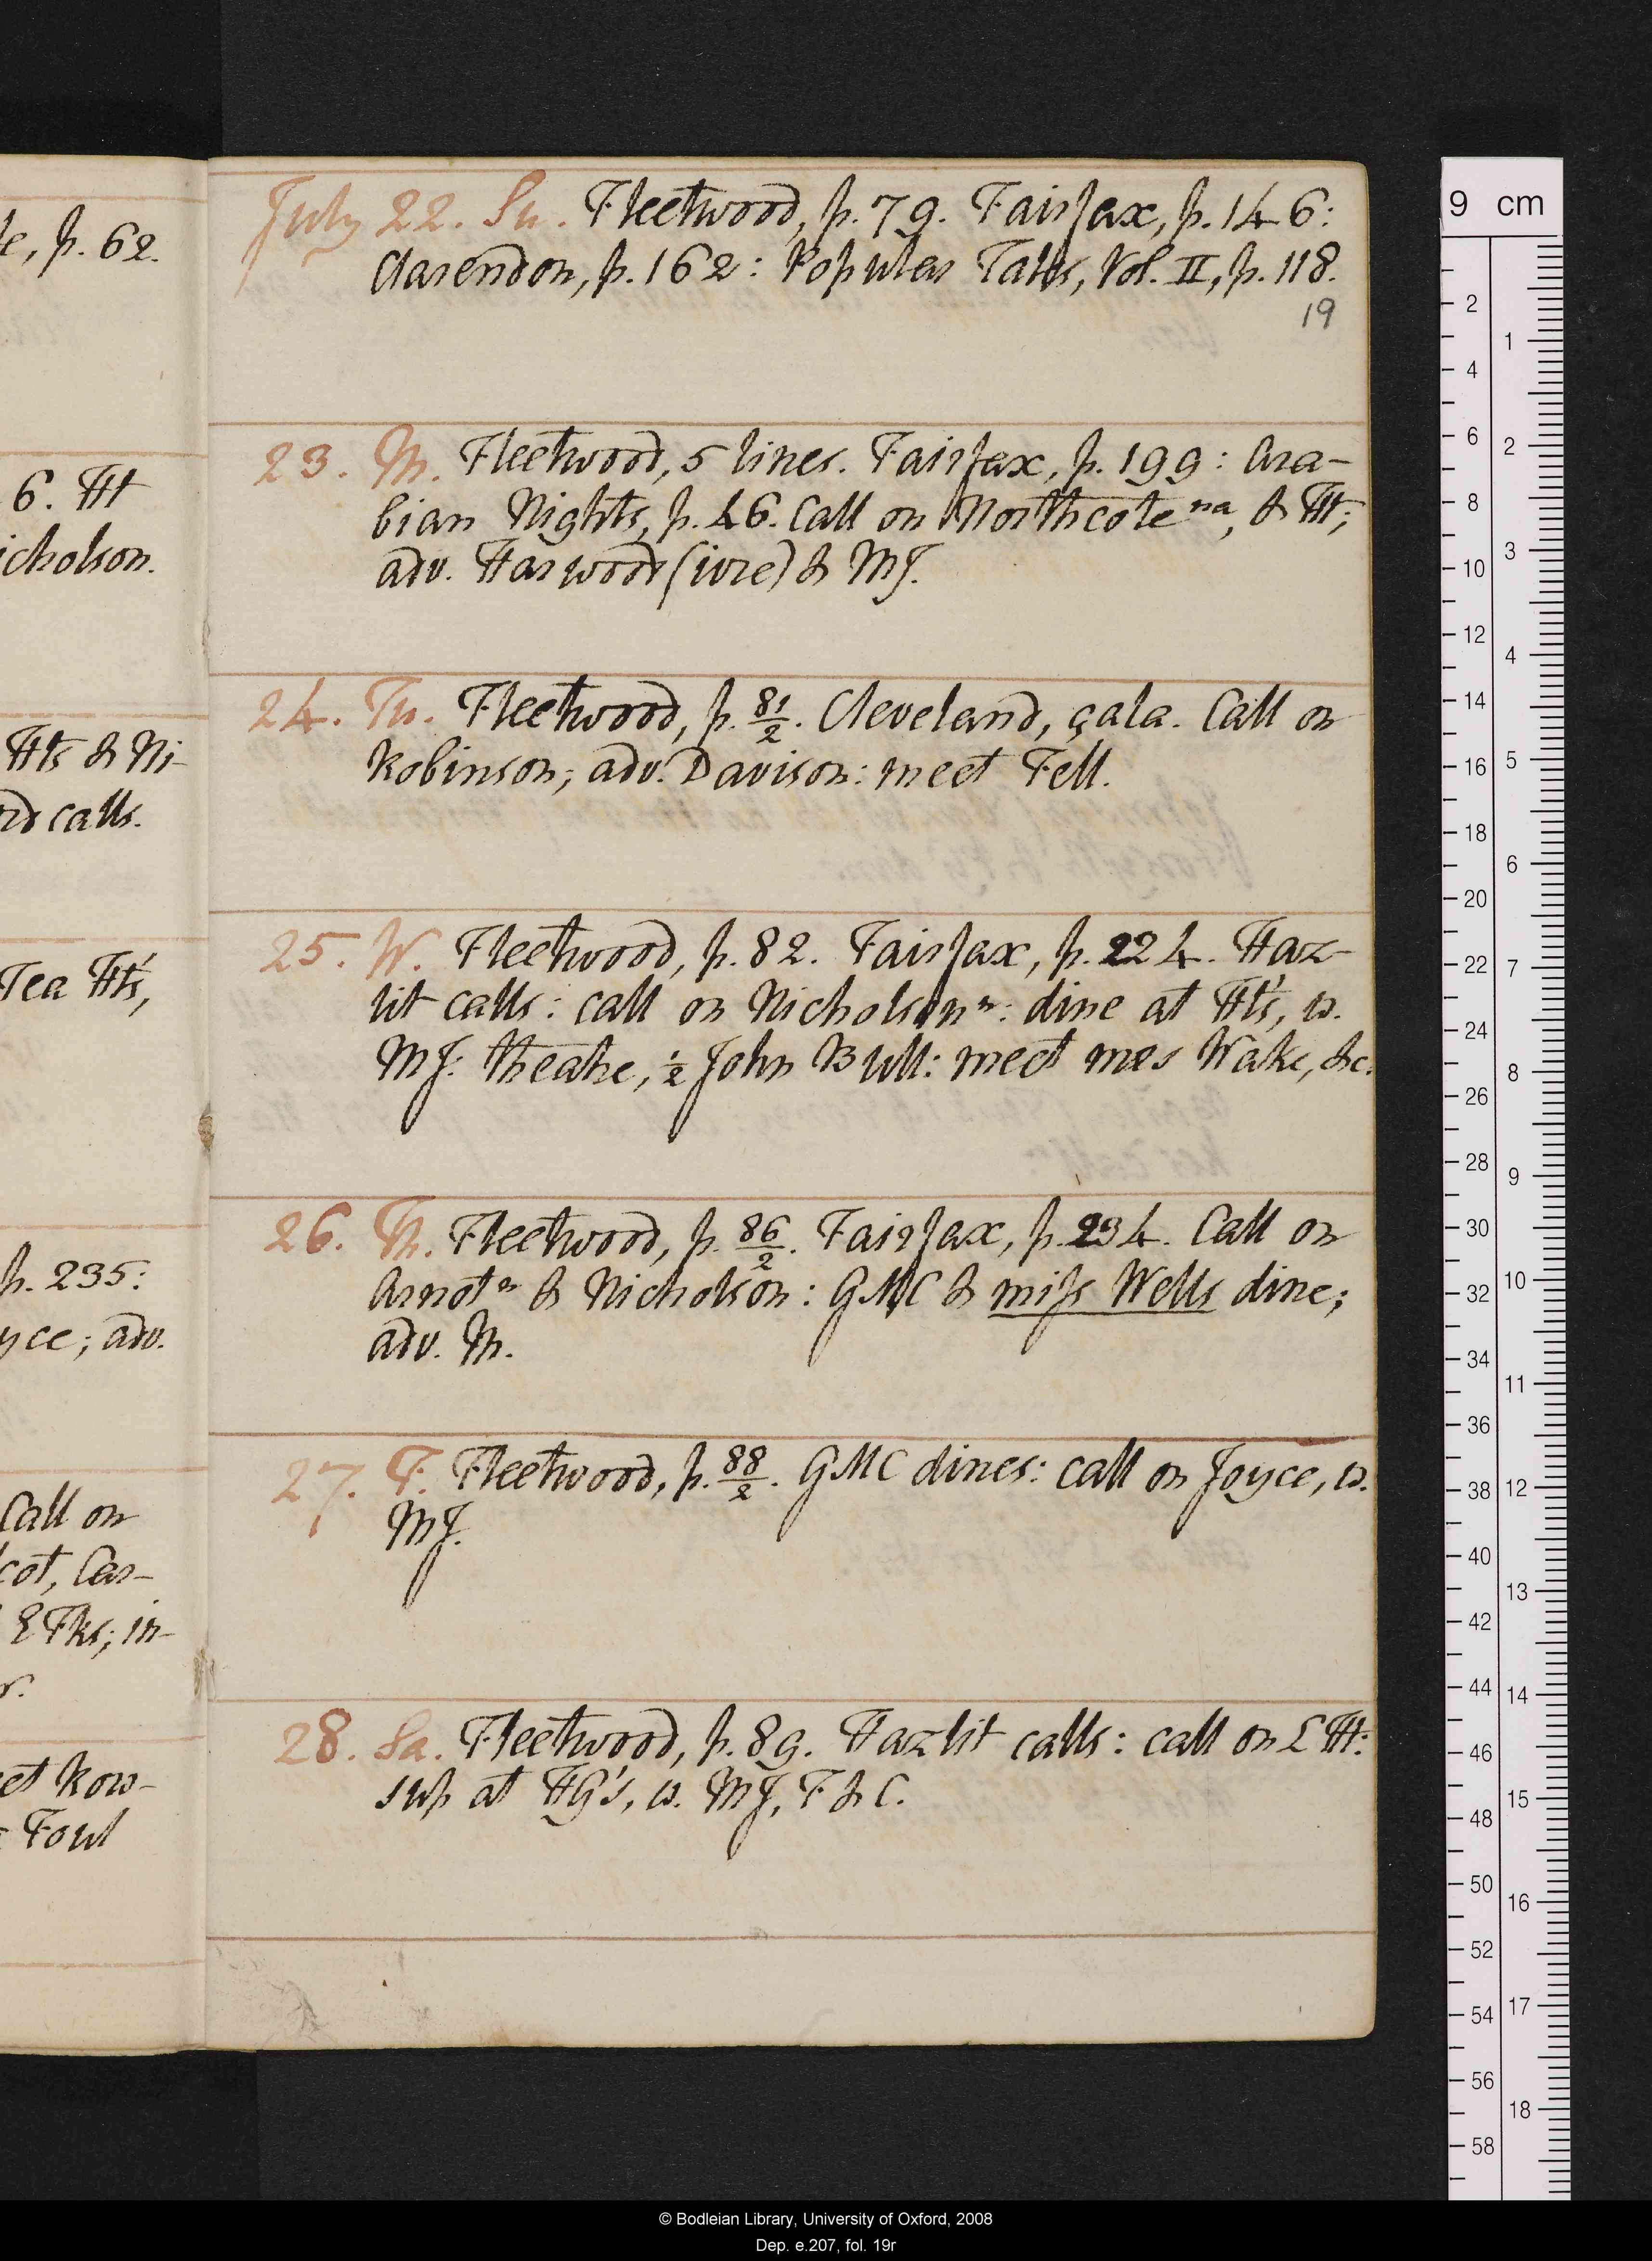 le, p. 62.
6. Ht
icholson.
Hts & Ni-
rd calls.
Tea Ht's,
p. 235:
yce; adv.
Call on
cot, Car-
E Fks; in-
r.
et Row-
Foul
July 22. Su. Fleetwood, p. 79. Fairfax, p. 146:
Clarendon, p. 162: Popular Tales, Vol. II, p. 118.
19
23. M. Fleetwood, 5 lines. Fairfax, p. 199: Ara-
bian Nights, p. 46. Call on Northcote na, & Ht;
adv. Harwood (ivre) & MJ.
24. Tu. Fleetwood, p. 81/2. Cleveland, çala. Call on
Robinson; adv. Davison: meet Fell.
25. W. Fleetwood, p. 82. Fairfax, p. 224. Haz-
lit calls: call on Nicholson n: dine at Ht's, w.
MJ: theatre, 1/2 John Bull: meet mrs Wake, &c.
26. Th. Fleetwood, p. 86/2. Fairfax, p. 234. Call on
Arnot n & Nicholson: GMC & miss Wells dine;
adv. M.
27. F. Fleetwood, p. 88/2. GMC dines: call on Joyce, w.
MJ.
28. Sa. Fleetwood, p. 89. Hazlit calls: call on L Ht:
sup at HG's, w. MJ, F & C.
9 cm
2
4
6
8
10
12
14
16
18
20
22
24
26
28
30
32
34
36
38
40
42
44
46
48
50
52
54
56
58
1
2
3
4
5
6
7
8
9
10
11
12
13
14
15
16
17
18
© Bodleian Library, University of Oxford, 2008
Dep. e.207, fol. 19r